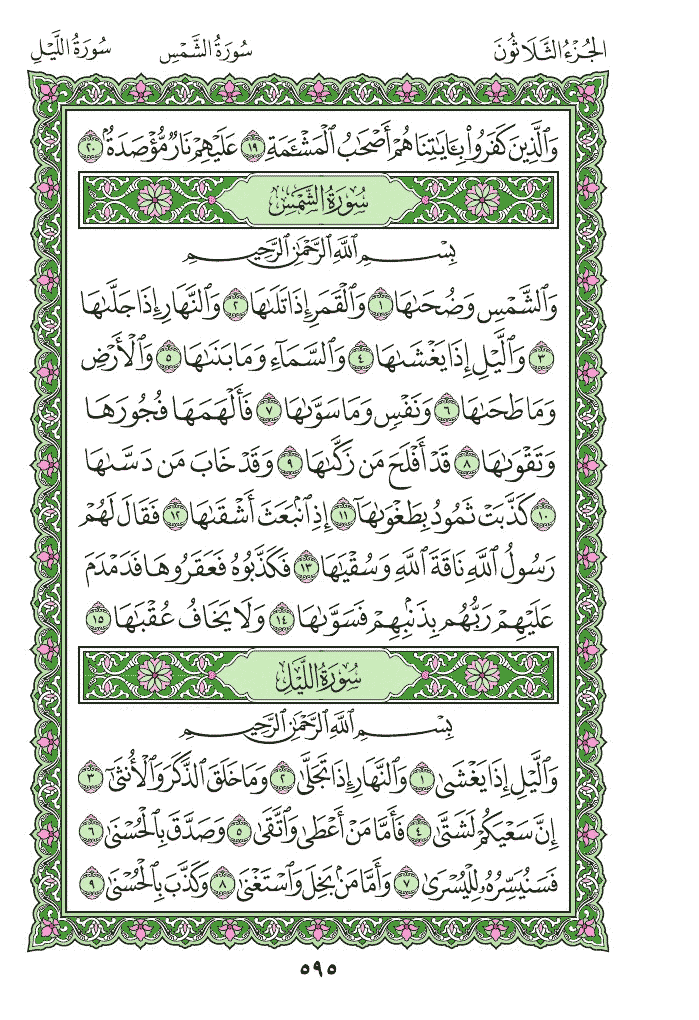 الجزء الثلاثون سورة الشمس سورة الليل
وَٱلَّذِينَ كَفَرُوا۟ بِـَٔايَٰتِنَا هُمْ أَصْحَٰبُ ٱلْمَشْـَٔمَةِ ١٩ عَلَيْهِمْ نَارٌ مُّؤْصَدَةٌۢ ٢٠
سُورَةُ الشَّمْسِ
بِسْمِ ٱللَّهِ ٱلرَّحْمَٰنِ ٱلرَّحِيمِ
وَٱلشَّمْسِ وَضُحَىٰهَا ١ وَٱلْقَمَرِ إِذَا تَلَىٰهَا ٢ وَٱلنَّهَارِ إِذَا جَلَّىٰهَا
٣ وَٱلَّيْلِ إِذَا يَغْشَىٰهَا ٤ وَٱلسَّمَآءِ وَمَا بَنَىٰهَا ٥ وَٱلْأَرْضِ
وَمَا طَحَىٰهَا ٦ وَنَفْسٍ وَمَا سَوَّىٰهَا ٧ فَأَلْهَمَهَا فُجُورَهَا
وَتَقْوَىٰهَا ٨ قَدْ أَفْلَحَ مَن زَكَّىٰهَا ٩ وَقَدْ خَابَ مَن دَسَّىٰهَا
١٠ كَذَّبَتْ ثَمُودُ بِطَغْوَىٰهَآ ١١ إِذِ ٱنۢبَعَثَ أَشْقَىٰهَا ١٢ فَقَالَ لَهُمْ
رَسُولُ ٱللَّهِ نَاقَةَ ٱللَّهِ وَسُقْيَٰهَا ١٣ فَكَذَّبُوهُ فَعَقَرُوهَا فَدَمْدَمَ
عَلَيْهِمْ رَبُّهُم بِذَنۢبِهِمْ فَسَوَّىٰهَا ١٤ وَلَا يَخَافُ عُقْبَٰهَا ١٥
سُورَةُ اللَّيْلِ
بِسْمِ ٱللَّهِ ٱلرَّحْمَٰنِ ٱلرَّحِيمِ
وَٱلَّيْلِ إِذَا يَغْشَىٰ ١ وَٱلنَّهَارِ إِذَا تَجَلَّىٰ ٢ وَمَا خَلَقَ ٱلذَّكَرَ وَٱلْأُنثَىٰٓ ٣
إِنَّ سَعْيَكُمْ لَشَتَّىٰ ٤ فَأَمَّا مَنْ أَعْطَىٰ وَٱتَّقَىٰ ٥ وَصَدَّقَ بِٱلْحُسْنَىٰ ٦
فَسَنُيَسِّرُهُۥ لِلْيُسْرَىٰ ٧ وَأَمَّا مَنۢ بَخِلَ وَٱسْتَغْنَىٰ ٨ وَكَذَّبَ بِٱلْحُسْنَىٰ ٩
٥٩٥